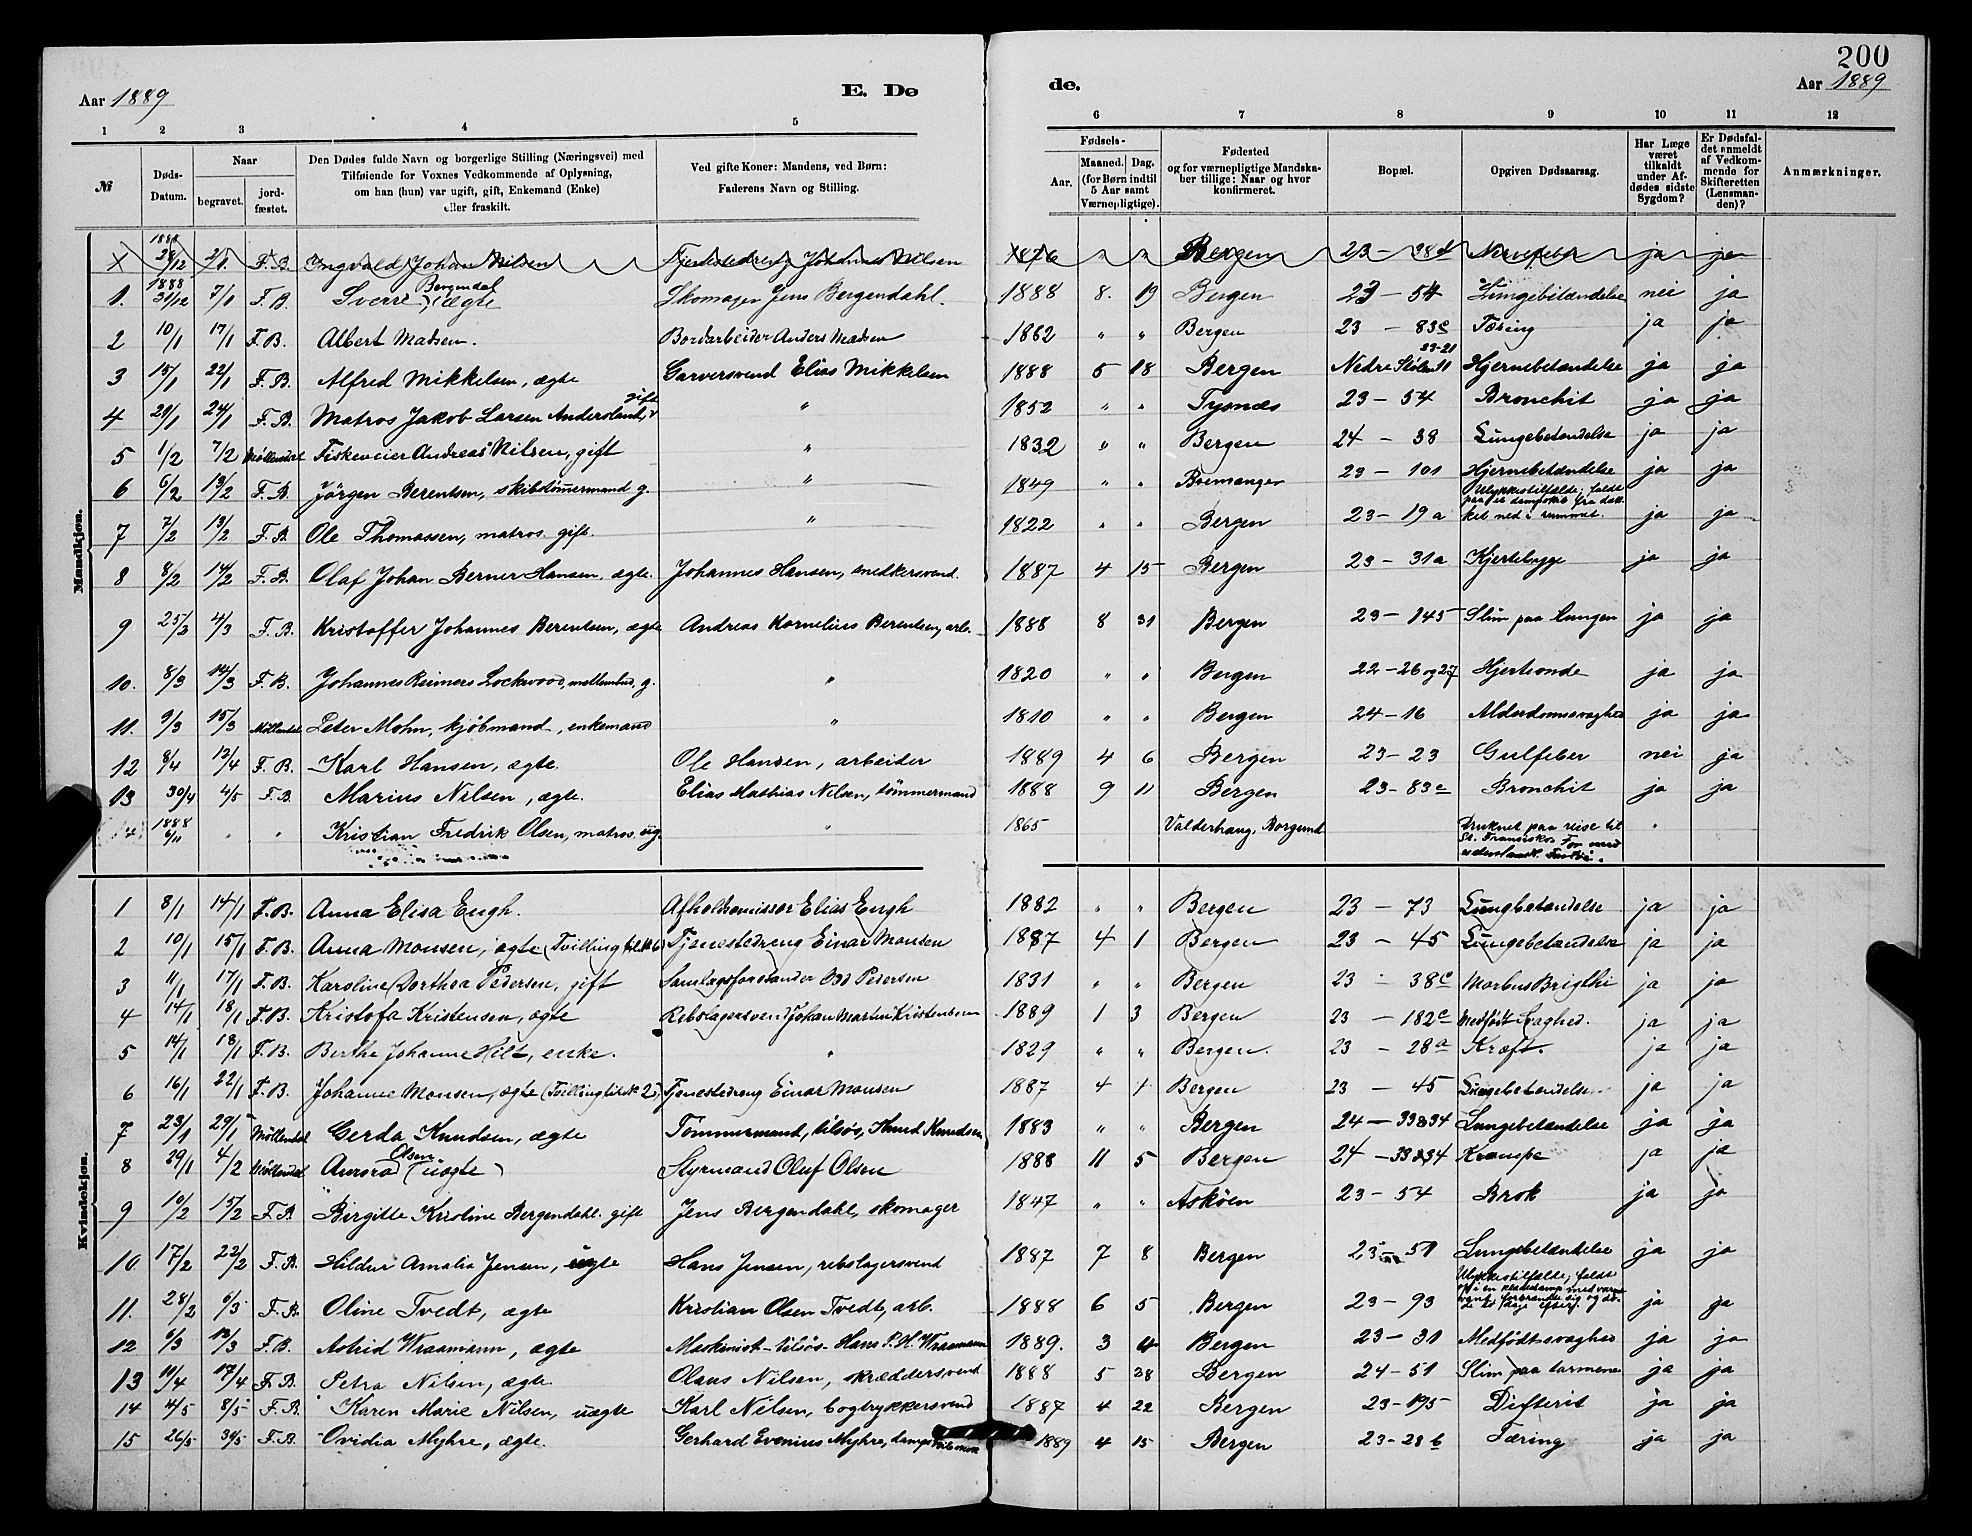 200
Aar 1889
E. Dø
de.
Aar 1889
1 2 3 4 5 6 7 8 9 10 11 12
№
Døds-Datum.
Naar
begravet.
jord-fæstet.
Den Dødes fulde Navn og borgerlige Stilling (Næringsvei) med
Tilføiende for Voxnes Vedkommende af Oplysning,
om han (hun) var ugift, gift, Enkemand (Enke)
eller fraskilt.
Ved gifte Koner: Mandens, ved Børn:
Faderens Navn og Stilling.
Fødsels-
Aar.
Maaned. Dag.
(for Børn indtil
5 Aar samt
Værnepligtige).
Fødested
og for værnepligtige Mandska-
ber tillige: Naar og hvor
konfirmeret.
Bopæl.
Opgiven Dødsaarsag.
Har Læge
været
tilkaldt
under Af-
dødes sidste
Sygdom?
Er Dødsfal-
det anmeldt
af Vedkom-
mende for
Skifteretten
(Lensman-
den)?
Anmærkninger.
Mandkjøn.
X 1888 28/12 2/1 F.B. Ingvald Johan Nilsen Tjenestedreng Johannes Nilsen 1876 " " Bergen 23 - 38d Nervefeber ja ja
1. 1888 31/12 7/1 F.B. Sverre Bergendal, uægte Skomager Jens Bergendahl. 1888 8. 19 Bergen 23 - 54 Lungebetændelse nei ja
2 10/1 17/1 F.B. Albert Madsen. Bordarbeider Anders Madsen 1862 " " Bergen 23 - 83c Tæring ja ja
3 15/1 22/1 F.B. Alfred Mikkelsen, ægte Garversvend Elias Mikkelsen 1888 5 18 Bergen Nedre Stølen 11 23-21 Hjernebetændelse ja ja
4 20/1 24/1 F.B. Matros Jakob Larsen Andersland, gift " 1852 " " Tysnæs 23 - 54 Bronchit ja ja
5 1/2 7/2 Møllendal Fiskeveier Andreas Nilsen, gift " 1832 " " Bergen 24 - 38 Lungebetændelse ja ja
6 6/2 13/2 F.B. Jörgen Berentsen, skibstömmermand g. " 1849 " " Bremanger 23 - 101 Hjernebetændelse ja ja
7 7/2 13/2 F.B. Ole Thomassen, matros gift. " 1822 " " Bergen 23 - 19a Ulykkestilfælde; faldt paa et dampskib fra dækket ned i rummet. ja ja
8 8/2 14/2 F.B. Olaf Johan Berner Hansen, ægte. Johannes Hansen, snedkersvend. 1887 4 15 Bergen 23 - 31a Kjertelsyge ja ja
9 25/3 4/3 F.B. Kristoffer Johannes Berentsen, ægte Andreas Kornelius Berentsen, arb. 1888 8 31 Bergen 23 - 145 Slim paa lungen ja ja
10. 8/3 14/3 F.B. Johannes Reimers Lockwood, mellembud, g. " 1820 " " Bergen 22-26og27 Hjerteonde ja ja
11. 9/3 15/3 Møllendal Peter Mohn, kjöbmand, enkemand " 1810 " " Bergen 24-16 Alderdomssvaghed ja ja
12 8/4 13/4 F.B. Karl Hansen, ægte. Ole Hansen, arbeider 1889 4 6 Bergen 23-23 Gulfeber nei ja
13 30/4 4/5 F.B. Marius Nilsen, ægte. Elias Mathias Nilsen, tömmermand 1888 9 11 Bergen 23-83c Bronchit ja ja
14) 1888 6/11 " " Kristian Fredrik Olsen, matros ug. " 1865 Valderhaug, Borgund Druknet paa reise til St. Francisko. For med
Kvindekjøn.
1 8/1 14/1 F.B. Anna Elisa Engh. Afholdsemissær Elias Engh 1882 " " Bergen 23 - 73 Lungbetændelse ja ja
2 10/1 15/1 F.B. Anna Monsen, ægte (Tvilling til № 6) Tjenestedreng Einar Monsen 1887 4 1 Bergen 23 - 45 Lungebetændelse ja ja
3 11/1 17/1 F.B. Karoline Dorthea Pedersen, gift Samlagsforstander Pedersen 1831 " " Bergen 23 - 38c Morbus Brigthi ja ja
4 14/1 18/1 F.B. Kristofa Kristensen, ægte Rebslagersvend Johan Martin Kristensen 1889 1 3 Bergen 23 - 182c Medfødt svaghed. ja ja
5 14/1 18/1 F.B. Berthe Johanne Hilt, enke. " 1829 " " Bergen. 23 - 28a Kræft. ja ja
6 16/1 22/1 F.B. Johanne Monsen, ægte (Tvilling til № 2) Tjenestedreng Einar Monsen 1887 4 1 Bergen 23 - 45 Lungebetændelse ja ja
7 23/1 29/1 Møllendal Gerda Knudsen, ægte Tömmermand, tilsös, Knud Knudsen 1883 " " Bergen 24-33a34 Lungebetændelse ja ja
8 29/1 4/2 Møllendal Aurora Olsen (uægte) Styrmand Oluf Olsen 1888 11 5 Bergen 24-33a34 Krampe ja ja
9 10/2 15/2 F.B. Birgitte Kristine Bergendahl. gift Jens Bergendahl, skomager 1847 " " Askøen 23-54 Brok ja ja
10. 17/2 22/2 F.B. Hildur Amalia Jensen, uægte Hans Jensen, rebslagersvend 1887 7 8 Bergen 23-51 Lungebetændelse ja ja
11. 28/2 6/3 F.B. Oline Tvedt, ægte Kristian Olsen Tvedt, arb. 1888 6 5 Bergen 23-93 Ulykkestilfælde; faldt i en med varmt vand, forbrændte sig og døde et Par dage efter. ja ja
12 6/3 13/3 F.B. Astrid Wraamann, ægte Maskinist-tilsös Hans P.H. Wraamann 1889. 3 4 Bergen 23-31 Medfødt svaghed ja ja
13 10/4 17/4 F.B. Petra Nilsen, ægte. Olaus Nilsen, skræddersvend 1888 5 28 Bergen 24-51 Slim paa tarmene ja ja
14 4/5 8/5 F.B. Karen Marie Nilsen, uægte Karl Nilsen, bogtrykkersvend 1887 4 22 Bergen 23-195 Difterit ja ja
15 26/5 30/5 F.B. Ovidia Myhre, ægte. Gerhard Evenius Myhre, 1889 4 15 Bergen 23-28b Tæring ja ja